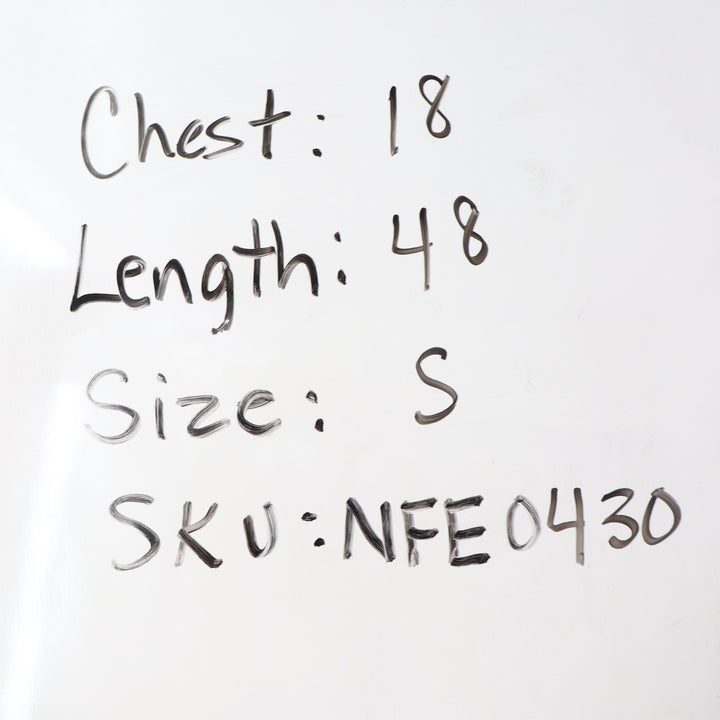 Chest: 18
Length: 48
Size: S
SKU:NFE0430